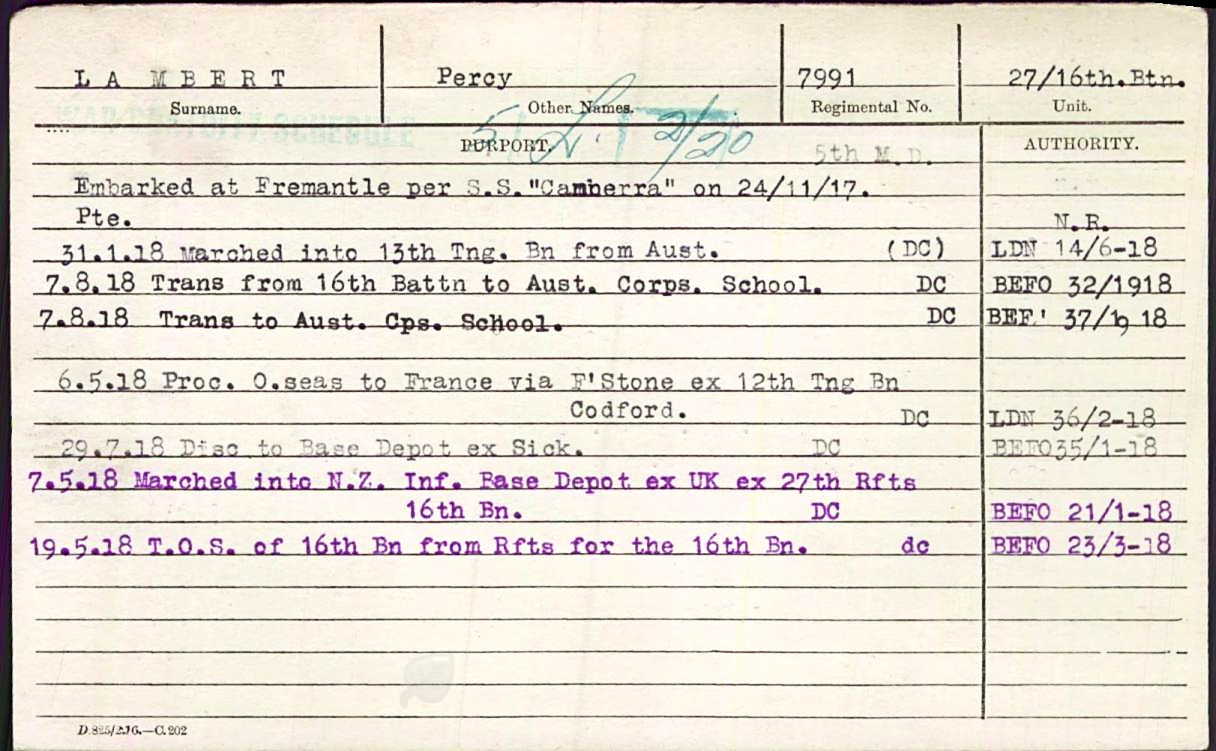 L A M B E R T Percy 7991 27/16th.Btn.
Surname. Other Names. Regimental No. Unit.
WAR GRATUITY SCHEDULE
2/20
PURPORT. 5th M.D. AUTHORITY.
Embarked at Fremantle per S.S."Canberra" on 24/11/17.
Pte. N.R.
31.1.18 Marched into 13th Tng. Bn from Aust. (DC) LDN 14/6-18
7.8.18 Trans from 16th Battn to Aust. Corps. School. DC BEFO 32/1918
7.8.18 Trans to Aust. Cps. School. DC BEF' 37/19 18
6.5.18 Proc. O.seas to France via F'Stone ex 12th Tng Bn
Codford. DC LDN 36/2-18
29.7.18 Disc to Base Depot ex Sick. DC BEFO35/1-18
7.5.18 Marched into N.Z. Inf. Base Depot ex UK ex 27th Rfts
16th Bn. DC BEFO 21/1-18
19.5.18 T.O.S. of 16th Bn from Rfts for the 16th Bn. dc BEFO 23/3-18
D.825/2.16.—C.202